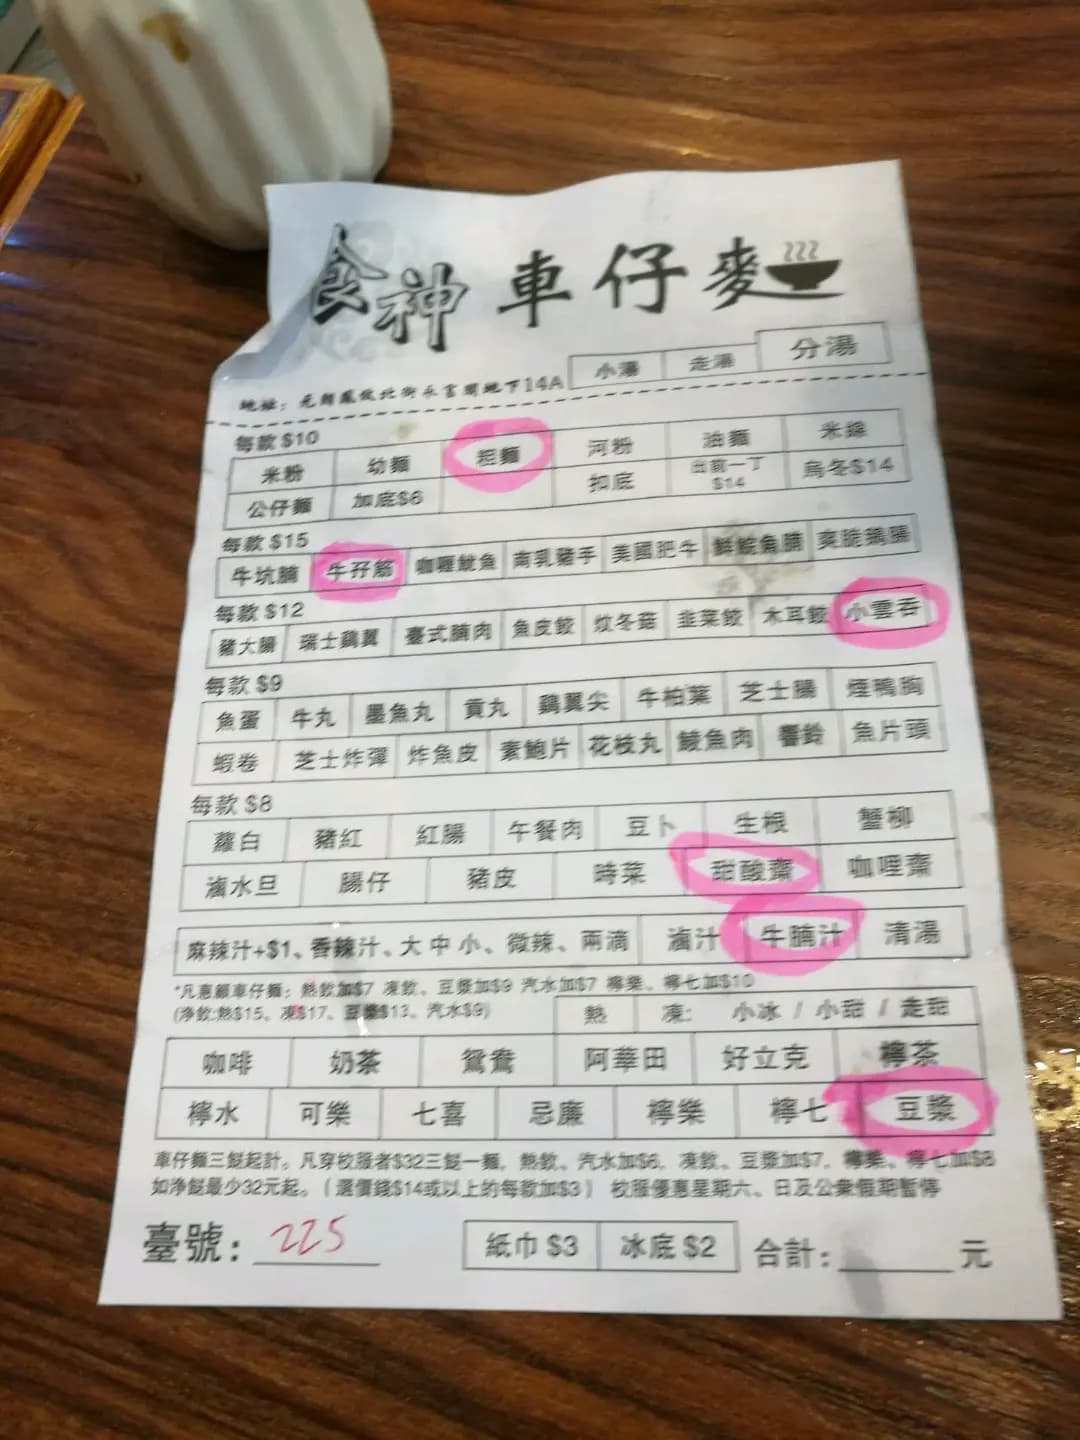 食神 車仔麥
小湯 走湯 分湯
地址：元朗鳳攸北街永富閣地下14A
每款 $10
米粉 幼麵 粗麵 河粉 油麵 米線
公仔麵 加底$6 扣底 出前一丁$14 烏冬$14
每款 $15
牛坑腩 牛孖筋 咖喱魷魚 南乳豬手 美國肥牛 鮮鯇魚腩 爽脆鵝腸
每款 $12
豬大腸 瑞士鷄翼 臺式腩肉 魚皮餃 炆冬菇 韭菜餃 木耳餃 小雲吞
每款 $9
魚蛋 牛丸 墨魚丸 貢丸 鷄翼尖 牛柏葉 芝士腸 煙鴨胸
蝦卷 芝士炸彈 炸魚皮 素鮑片 花枝丸 鯪魚肉 響鈴 魚片頭
每款 $8
蘿白 豬紅 紅腸 午餐肉 豆卜 生根 蟹柳
滷水旦 腸仔 豬皮 時菜 甜酸齋 咖哩齋
麻辣汁+$1、香辣汁、大 中 小、微辣、兩滴 滷汁 牛腩汁 清湯
*凡惠顧車仔麵：熱飲加$7 凍飲、豆漿加$9 汽水加$7 檸樂、檸七加$10
(净飲:熱$15、凍$17、豆漿$13、汽水$9) 熱 凍: 小冰 / 小甜 / 走甜
咖啡 奶茶 鴛鴦 阿華田 好立克 檸茶
檸水 可樂 七喜 忌廉 檸樂 檸七 豆漿
車仔麵三餸起計。凡穿校服者$32三餸一麵，熱飲、汽水加$6，凍飲、豆漿加$7，檸樂、檸七加$8
如净餸最少32元起。（選價錢$14或以上的每款加$3） 校服優惠星期六、日及公衆假期暫停
臺號：225 紙巾 $3 冰底 $2 合計：元